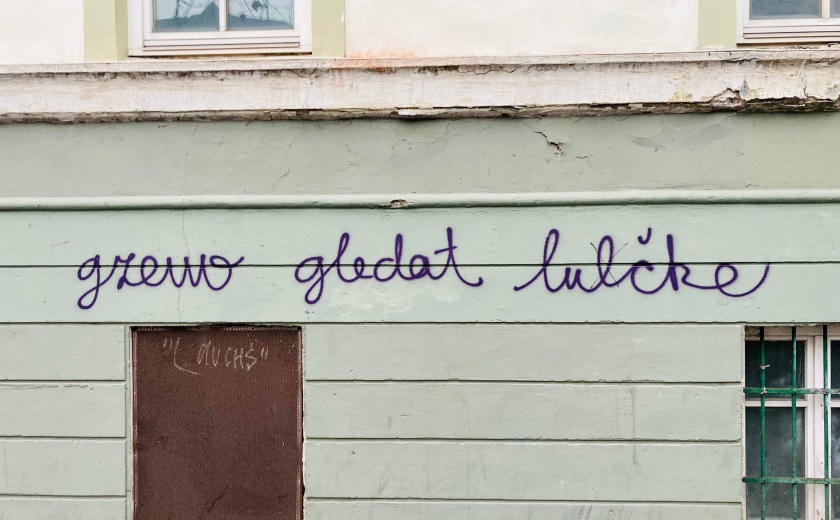 gremo gledat lučke
"LAUCHS"